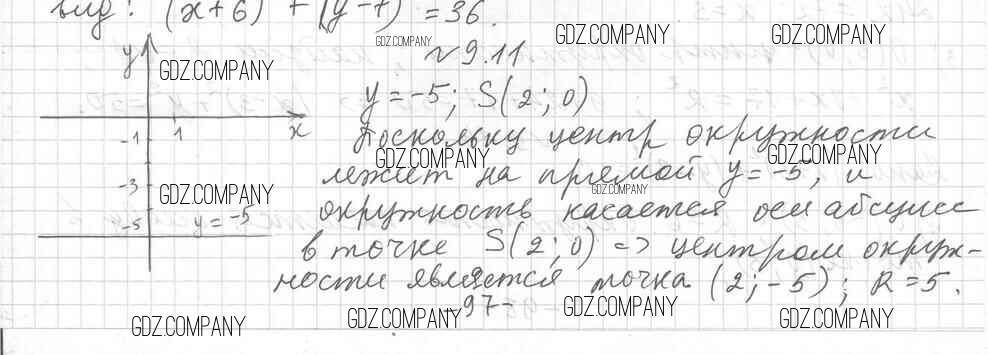 вид: (x+6) + (y-7) = 36.
GDZ.COMPANY GDZ.COMPANY GDZ.COMPANY
№ 9.11
y GDZ.COMPANY
y = -5; S(2; 0)
-1 1 x
Поскольку центр окружности
GDZ.COMPANY GDZ.COMPANY
лежит на прямой y = -5, и
-3 GDZ.COMPANY GDZ.COMPANY
окружность касается оси абсцисс
-5 y = -5
в точке S(2; 0) => центром окруж-
ности является точка (2; -5); R = 5.
- 97 -
GDZ.COMPANY GDZ.COMPANY GDZ.COMPANY GDZ.COMPANY